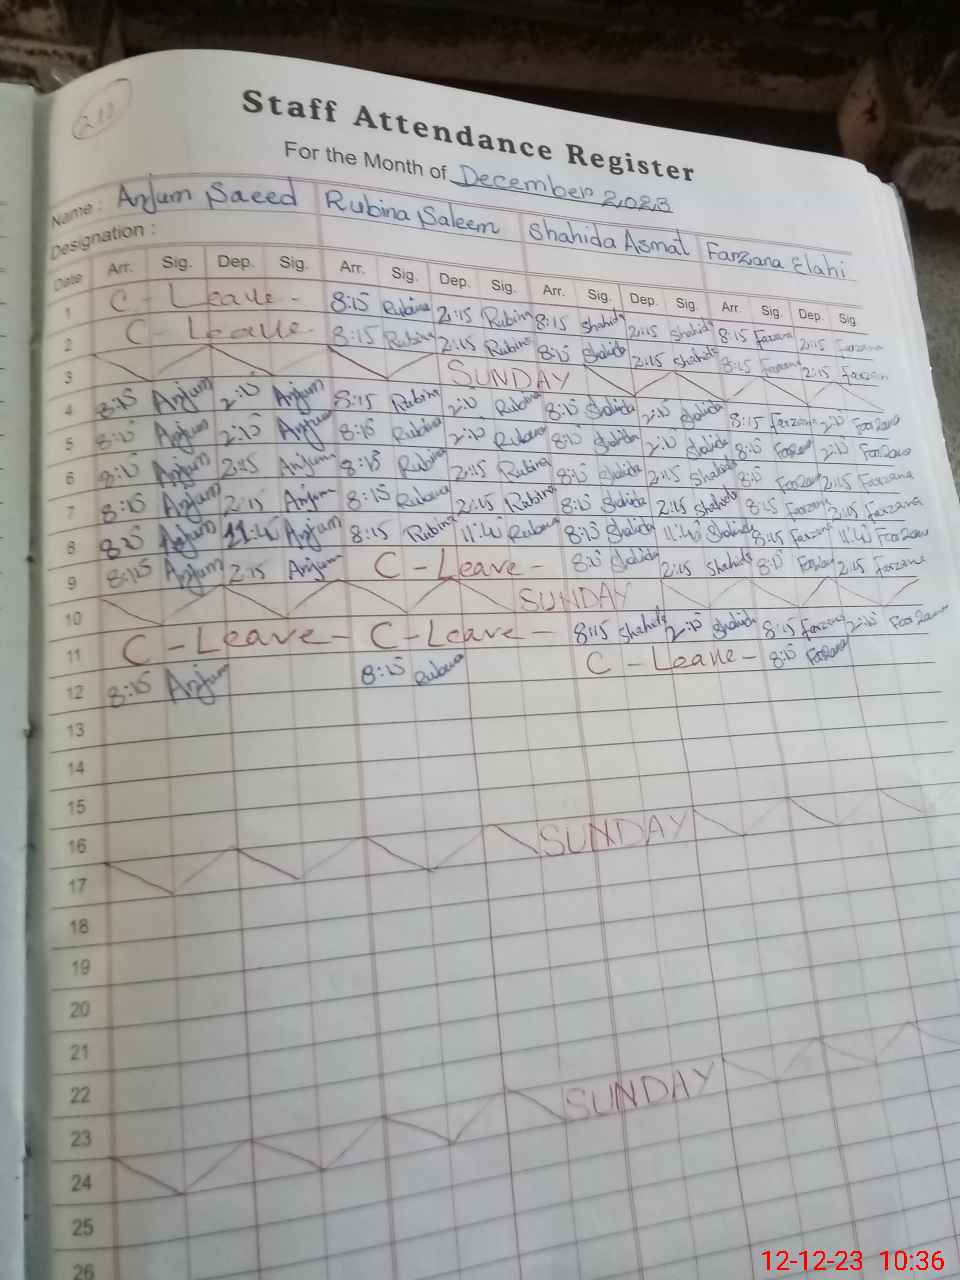 210
Staff Attendance Register
For the Month of December 2023
Name : Anjum Saeed Rubina Saleem Shahida Asmat Farzana Elahi
Designation :
Date Arr. Sig. Dep. Sig. Arr. Sig. Dep. Sig. Arr. Sig. Dep. Sig. Arr. Sig. Dep. Sig.
1 C - Leave - 8:15 Rubina 2:15 Rubina 8:15 Shahida 2:15 Shahida 8:15 Farzana 2:15 Farzana
2 C - Leave - 8:15 Rubina 2:15 Rubina 8:15 Shahida 2:15 Shahida 8:15 Farzana 2:15 Farzana
3 SUNDAY
4 8:15 Anjum 2:15 Anjum 8:15 Rubina 2:15 Rubina 8:15 Shahida 2:15 Shahida 8:15 Farzana 2:15 Farzana
5 8:15 Anjum 2:15 Anjum 8:15 Rubina 2:15 Rubina 8:15 Shahida 2:15 Shahida 8:15 Farzana 2:15 Farzana
6 8:15 Anjum 2:15 Anjum 8:15 Rubina 2:15 Rubina 8:15 Shahida 2:15 Shahida 8:15 Farzana 2:15 Farzana
7 8:15 Anjum 2:15 Anjum 8:15 Rubina 2:15 Rubina 8:15 Shahida 2:15 Shahida 8:15 Farzana 2:15 Farzana
8 8:15 Anjum 11:45 Anjum 8:15 Rubina 11:45 Rubina 8:15 Shahida 11:45 Shahida 8:15 Farzana 11:45 Farzana
9 8:15 Anjum 2:15 Anjum C - Leave - 8:15 Shahida 2:15 Shahida 8:15 Farzana 2:15 Farzana
10 SUNDAY
11 C - Leave - C - Leave - 8:15 Shahida 2:15 Shahida 8:15 Farzana 2:15 Farzana
12 8:15 Anjum 8:15 Rubina C - Leave - 8:15 Farzana
13
14
15
16 SUNDAY
17
18
19
20
21
22 SUNDAY
23
24
25
26
12-12-23 10:36